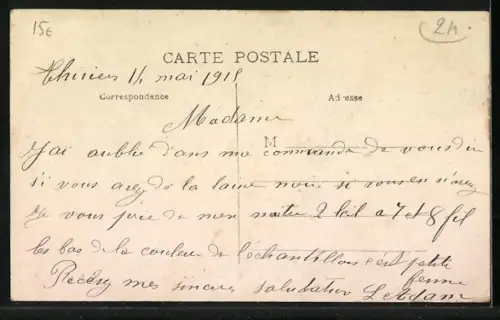 15€
24
CARTE POSTALE
Thiviers 14 mai 1915
Correspondance
Adresse
Madame
M
J'ai oublié dans ma commande de vous dire
si vous avez de la laine noire si vous en n'avez
je vous prie de men mettre 2 kil a 7 et 8 fil
les bas de la couleur de l'échantillons c'est petite
femme
Recevez mes sincères salutation